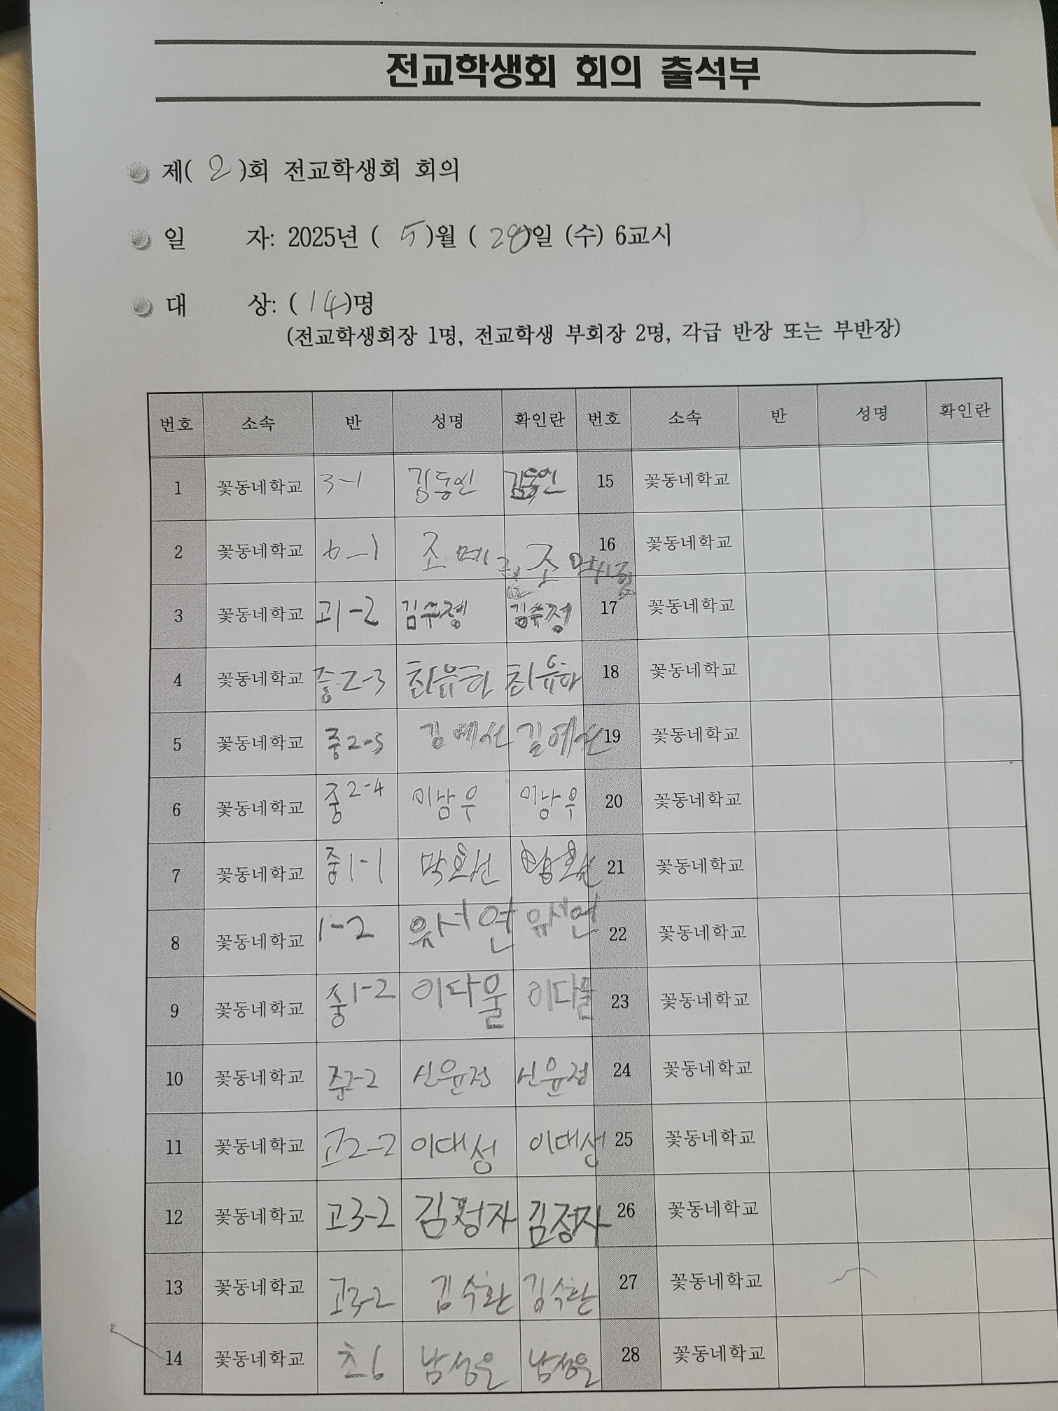 전교학생회 회의 출석부
제( 2 )회 전교학생회 회의
일 자: 2025년 ( 5 )월 ( 28 )일 (수) 6교시
대 상: ( 14 )명
(전교학생회장 1명, 전교학생 부회장 2명, 각급 반장 또는 부반장)
번호 소속 반 성명 확인란 번호 소속 반 성명 확인란
1 꽃동네학교 3-1 김동인 김동인 15 꽃동네학교
2 꽃동네학교 6-1 조 조 16 꽃동네학교
3 꽃동네학교 고1-2 김수정 김수정 17 꽃동네학교
4 꽃동네학교 중2-3 최유 최유 18 꽃동네학교
5 꽃동네학교 중2-3 김예선 김예선 19 꽃동네학교
6 꽃동네학교 중2-4 이남우 이남우 20 꽃동네학교
7 꽃동네학교 중1-1 21 꽃동네학교
8 꽃동네학교 1-2 유서연 유서연 22 꽃동네학교
9 꽃동네학교 중1-2 이다울 이다울 23 꽃동네학교
10 꽃동네학교 중2-2 신윤정 신윤정 24 꽃동네학교
11 꽃동네학교 고2-2 이대성 이대성 25 꽃동네학교
12 꽃동네학교 고3-2 김정자 김정자 26 꽃동네학교
13 꽃동네학교 고3-2 김수환 김수환 27 꽃동네학교
14 꽃동네학교 초6 남성은 남성은 28 꽃동네학교